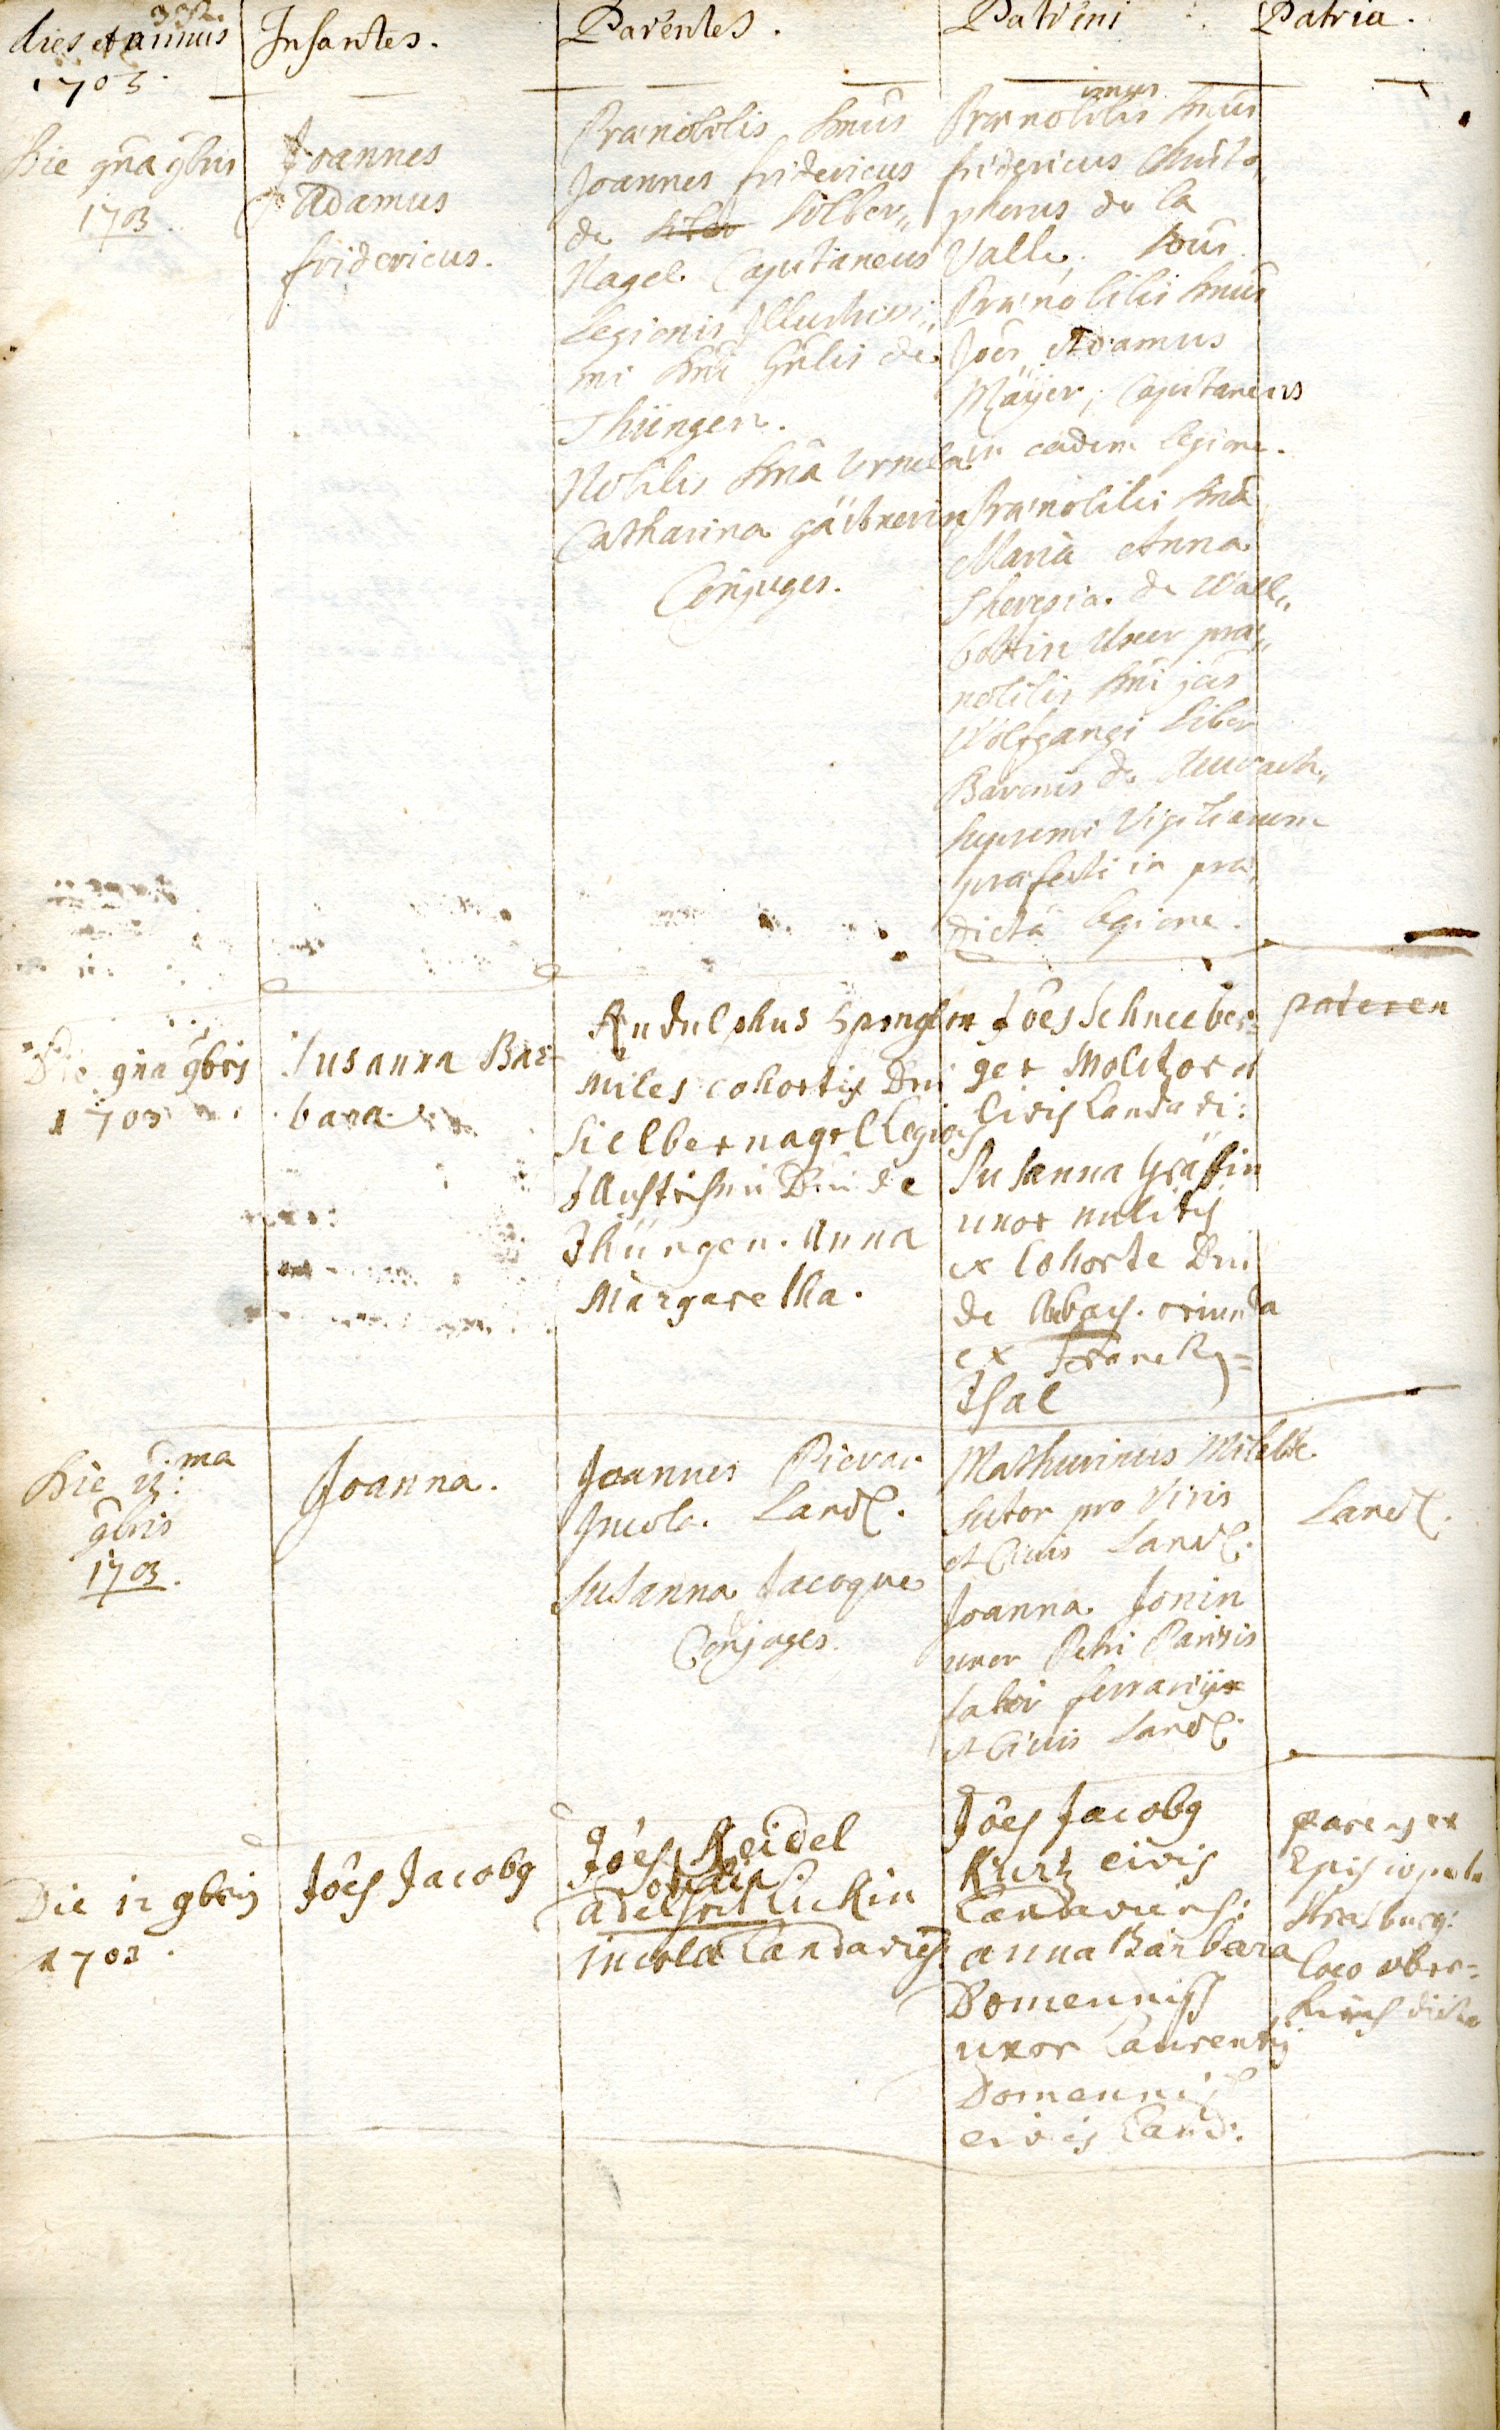 dies et annus
1703.
Infantes.
Parentes.
Patrini
Patria.
Die 9na 9bris
1703.
Joannes
Adamus
fridericus.
Prænobilis Dnus
Joannes fridericus
de Silber„
Nagel. Capitaneus
Legionis Illustrissi„
mi Dni Gnlis de
Thüngen.
Nobilis Dna Ursula
Catharina
Conjuges.
1mus
Prænobilis Dnus
fridericus Christo
pherus de la
Valle.
Prænobilis Dnus
Joes Adamus
Mäyer, Capitaneus
in eadem legione.
Prænobilis Dna
Maria Anna
Theresia de Wall„
bottin Uxor præ„
nobilis Dni
Wolfgangi Liber
Baronis de
supremi Vigiliarum
præfecti in præ„
dicta legione.
Die 9na 9bris
1703
Susanna Bar=
bara
Rudulphus
Miles cohortis Dni
Sielbernagel Legiois
Illustrissmi Dni de
Thüngen. Anna
Margaretha.
Joes Schneeber=
ger Molitor et
Civis Landavi:
Susanna Gräffin
uxor militis
ex Cohorte Dni
de oriunda
ex
Thal
Die 12:ma
9bris
1703.
Joanna.
Joannes
Incola Land.
Susanna Jacoque
Conjuges.
Mathurinus Milette
Sutor pro Viris
et Civis Land.
Joanna Jonin
uxor Petri Parisis
fabri ferrarij
et Civis Land.
Land.
Die 12 9bris
1703.
Joes Jacobg
Joes Reidel
Lickin
incolæ Landaviens:
Joes Jacobg
Kurtz civis
Landaviens:
anna Barbara
Domenniss
uxor Laurentij
Domenniss
civis Land:
parens ex
Episcopatu
Strasburg:
loco ober=
kirch dicto